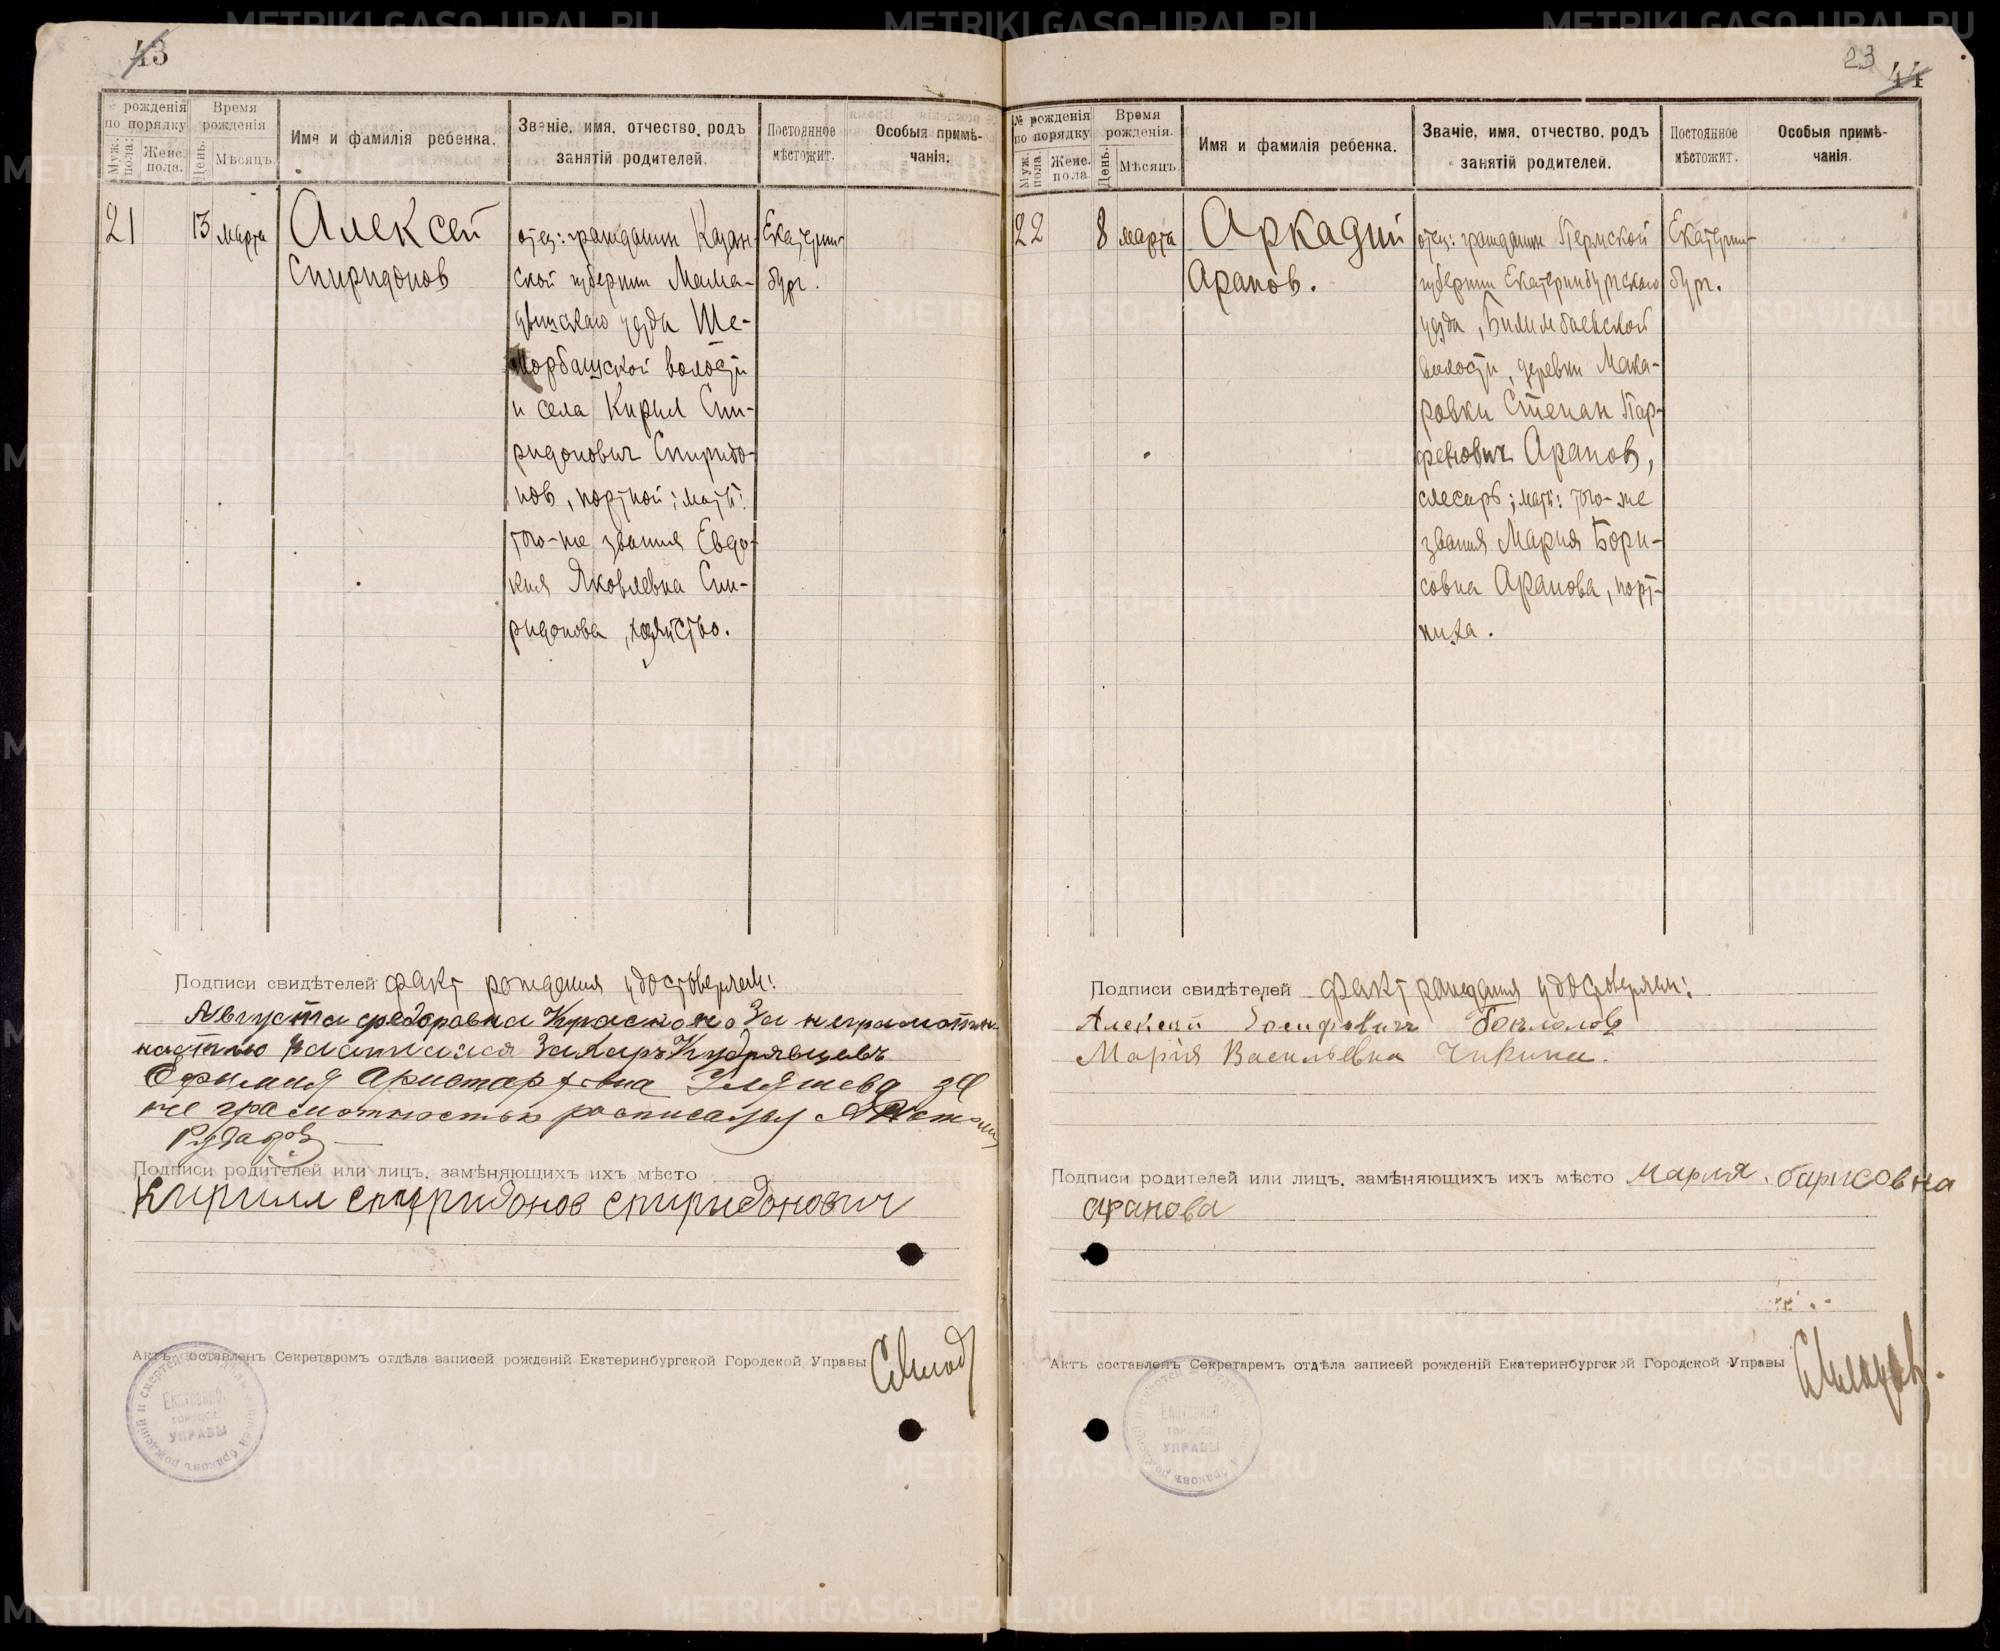 43
№ рожденія по порядку
Время рожденія
Муж. пола.
Женс. пола.
День.
Мѣсяцъ.
Имя и фамилія ребенка.
Званіе, имя, отчество, родъ занятій родителей.
Постоянное мѣстожит.
Особыя примѣчанія.
21
13
марта
Алексей
Спиридонов
отец: гражданин Казан-
ской губернии Мама-
дышскаго уезда Ше-
морбашской волости
и села Кирил Спи-
ридонович Спиридо-
нов, портной; мать:
того-же звания Евдо-
кия Яковлевна Спи-
ридонова, хозяйство.
Екатерин-
бург.
Подписи свидѣтелей факт рождения удостоверяем:
Августа федоровна за неграмот
ностью Захаръ Кудрявцевъ
Ефимия Аристарховна за
не грамотностью росписался
Подписи родителей или лицъ, замѣняющихъ ихъ мѣсто
Кирилл спиридонов спиридонович
Актъ составленъ Секретаремъ отдѣла записей рожденій Екатеринбургской Городской Управы
УПРАВЫ
23
44
№ рожденія по порядку
Время рожденія.
Муж. пола.
Женс. пола
День.
Мѣсяцъ.
Имя и фамилія ребенка.
Званіе, имя, отчество, родъ занятій родителей.
Постоянное мѣстожит.
Особыя примѣчанія.
22
8
марта
Аркадий
Арапов.
отец: гражданин Пермской
губернии Екатеринбургскаго
уезда, Билимбаевской
волости, деревни Мака-
ровки Степан Пар-
фенович Арапов,
слесарь; мать: того-же
звания Мария Бори-
совна Арапова, порт-
ниха.
Екатерин-
бург.
Подписи свидѣтелей факт рождения удостоверяем:
Алексей
Марія Васильевна
Подписи родителей или лицъ, замѣняющихъ ихъ мѣсто Мария. барисовна
арапова
Актъ составленъ Секретаремъ отдѣла записей рожденій Екатеринбургской Городской Управы
УПРАВЫ
METRIKI.GASO-URAL.RU